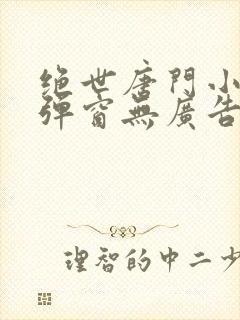 绝世唐門小
彈窗無廣告
理智的中二少